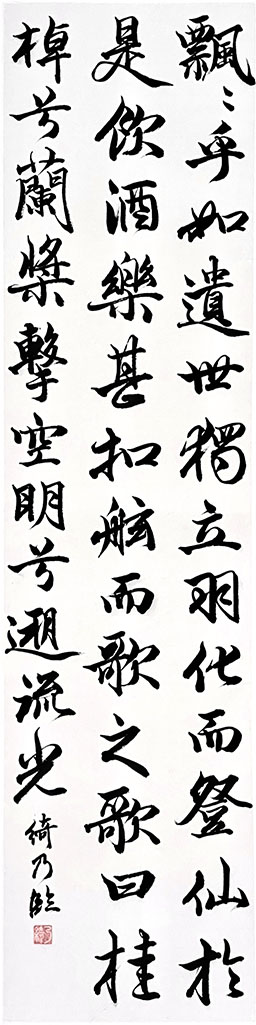 飄〻乎如遺世獨立羽化而登仙於
是飲酒樂甚扣舷而歌之歌曰桂
棹兮蘭槳擊空明兮遡流光
綺乃臨